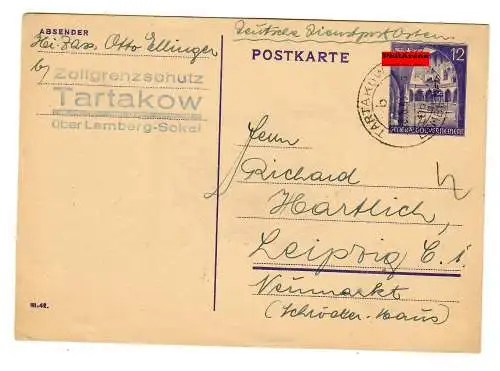 ABSENDER
Hi. Zass. Otto Ellinger
b/
Zollgrenzschutz
Tartakow
über Lemberg-Sokal
Deutsche Dienstpost Osten
POSTKARTE
12
GENERALGOUVERNEMENT
TARTAKOW
Herrn
Richard
Hartlich,
Leipzig C. 1.
Neumarkt
(Schröder-Haus)
III.42.